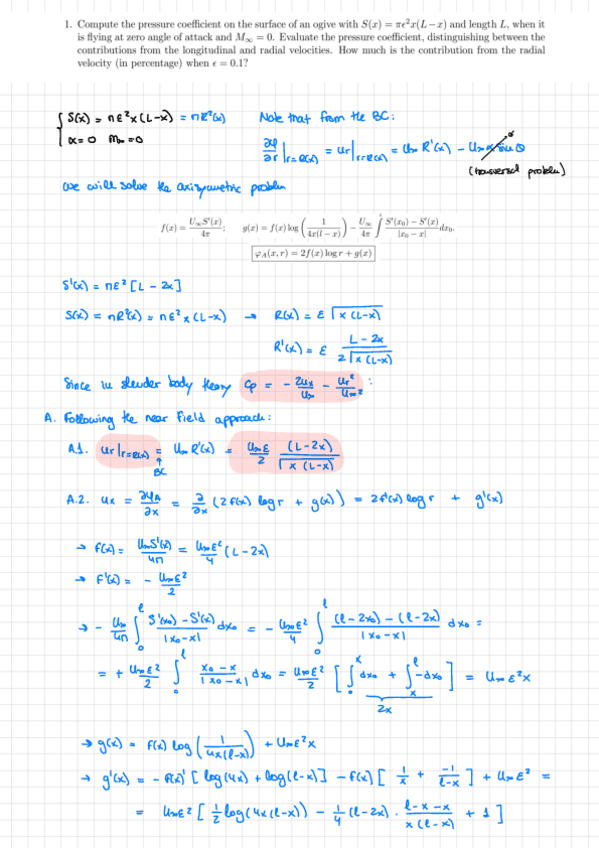 1. Compute the pressure coefficient on the surface of an ogive with S(x) = πϵ²x(L−x) and length L, when it
is flying at zero angle of attack and M∞ = 0. Evaluate the pressure coefficient, distinguishing between the
contributions from the longitudinal and radial velocities. How much is the contribution from the radial
velocity (in percentage) when ϵ = 0.1?
{ S(x) = πε²x(L-x) = πR²(x)
α=0 M∞=0
Note that from the BC:
∂φ/∂r |r=R(x) = ur|r=R(x) = U∞ R'(x) - U∞ α sin θ → 0
(transversal problem)
we will solve the axisymmetric problem
f(x) = U∞S'(x)/4π; g(x) = f(x) log (1/4x(l−x)) − U∞/4π ∫ S'(x₀) − S'(x)/|x₀ − x| dx₀.
φA(x, r) = 2f(x) log r + g(x)
S'(x) = πε² [L - 2x]
S(x) = πR²(x) = πε² x (L-x) → R(x) = ε √x (L-x)
R'(x) = ε L - 2x / 2√x (L-x)
Since in slender body theory Cp = - 2ux/U∞ - ur²/U∞² :
A. Following the near field approach:
A.1. ur|r=R(x) = U∞ R'(x) = U∞ε/2 (L-2x)/√x (L-x)
↑ BC
A.2. ux = ∂φA/∂x = ∂/∂x (2f(x) log r + g(x)) = 2f'(x) log r + g'(x)
→ f(x) = U∞S'(x)/4π = U∞ε²/4 (L-2x)
→ f'(x) = - U∞ε²/2
→ - U∞/4π ∫₀ˡ S'(x₀) - S'(x)/|x₀-x| dx₀ = - U∞ε²/4 ∫₀ˡ (l-2x₀) - (l-2x)/|x₀-x| dx₀ =
= + U∞ε²/2 ∫₀ˡ x₀-x/|x₀-x| dx₀ = U∞ε²/2 [ ∫₀ˣ dx₀ + ∫ₓˡ -dx₀ ] = U∞ε²x
2x
→ g(x) = f(x) log (1/4x(l-x)) + U∞ε²x
→ g'(x) = - f(x)' [ log(4x) + log(l-x) ] - f(x) [ 1/x + -1/l-x ] + U∞ε² =
= U∞ε² [ 1/2 log(4x(l-x)) - 1/4 (l-2x) · l-x-x/x(l-x) + 1 ]